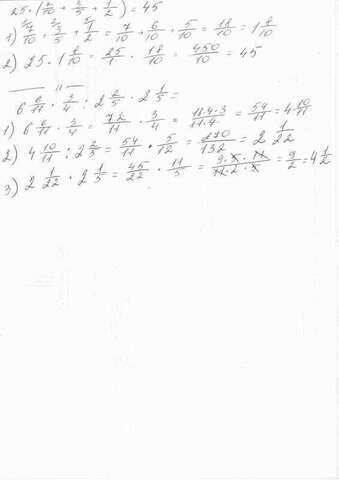 25·(7/10 + 3/5 + 1/2) = 45
1) 7/10 + 3/5 + 1/2 = 7/10 + 6/10 + 5/10 = 18/10 = 1 8/10
2) 25 · 1 8/10 = 25/1 · 18/10 = 450/10 = 45
— " —
6 6/11 · 3/4 : 2 2/5 · 2 1/5 =
1) 6 6/11 · 3/4 = 72/11 · 3/4 = = 54/11 = 4 10/11
2) 4 10/11 : 2 2/5 = 54/11 · 5/12 = 270/132 = 2 1/22
3) 2 1/22 · 2 1/5 = 45/22 · 11/5 = 9·5·11/11·2·5 = 9/2 = 4 1/2